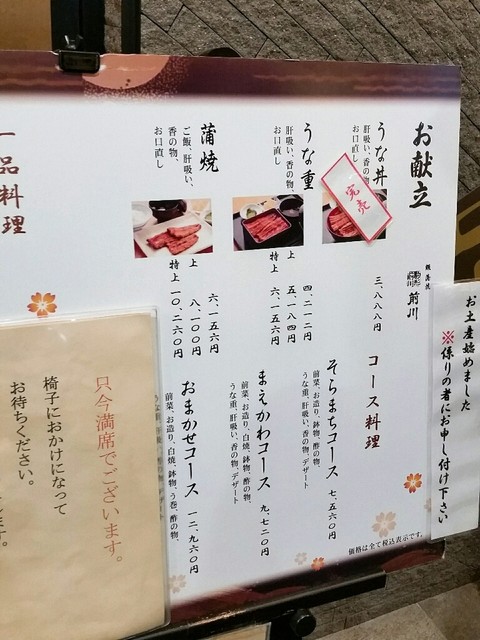 お献立
鰻蒲焼
前川
うな丼
肝吸い、香の物、
お口直し
完売
三、八八八円
うな重
肝吸い、香の物、
お口直し
四、二一二円
上 五、一八四円
特上 六、一五六円
蒲焼
ご飯、肝吸い、
香の物、
お口直し
六、一五六円
上 八、一〇〇円
特上 一〇、二六〇円
コース料理
そらまちコース 七、五六〇円
前菜、お造り、鉢物、酢の物、
うな重、肝吸い、香の物、デザート
まえかわコース 九、七二〇円
前菜、お造り、白焼、鉢物、酢の物、
うな重、肝吸い、香の物、デザート
おまかせコース 一二、九六〇円
前菜、お造り、白焼、鉢物、う巻、酢の物、
価格は全て税込表示です。
一品料理
お土産始めました
※係りの者にお申し付け下さい
只今満席でございます。
椅子におかけになって
お待ちください。